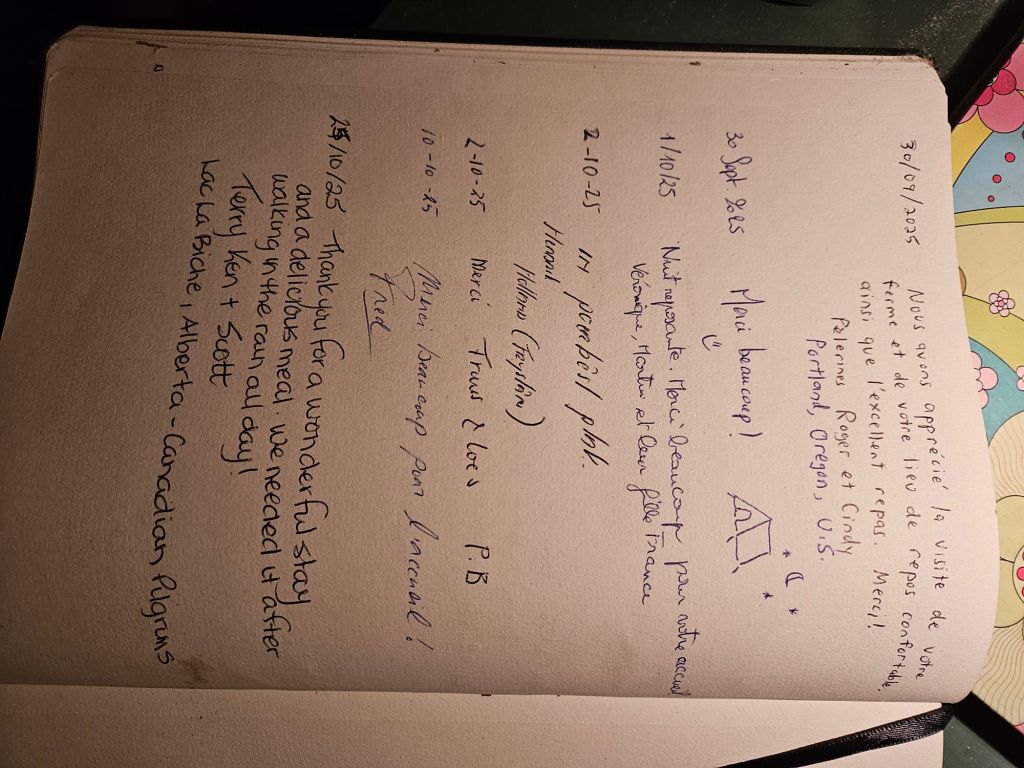 30/09/2025
Nous avons apprécié la visite de votre
ferme et de votre lieu de repos confortable,
ainsi que l'excellent repas. Merci!
Pèlerines Roger et Cindy
Portland, Oregon, U.S.
30 Sept. 2025 Merci beaucoup!
1/10/25 Nuit reposante. Merci beaucoup pour votre accueil
Véronique, et leur fille France
2-10-25
Holland
2-10-25 Merci Truus & P.B
10-10-25 Merci beaucoup pour l'accueil!
Fred
25/10/25 Thank you for a wonderful stay
and a delicious meal. We needed it after
walking in the rain all day!
Terry Ken + Scott
Lac La Biche, Alberta - Canadian Pilgrims